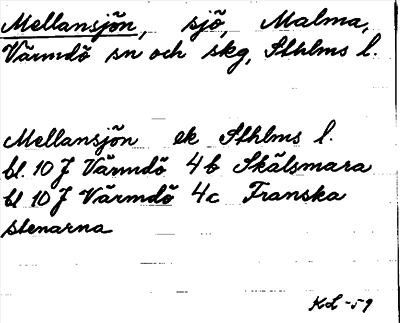 Mellansjön, sjö, Malma,
Värmdö sn och skg, Sthlms l.
Mellansjön ek Sthlms l.
bl. 10 J Värmdö 4b Skälsmara
bl 10 J Värmdö 4c Franska
stenarna
KL -59